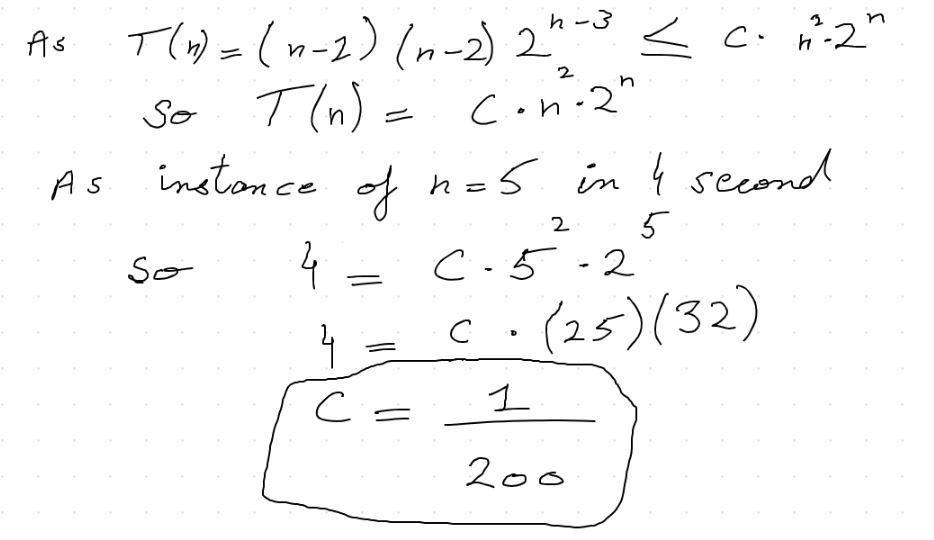 As T(n) = (n-1) (n-2) 2^{n-3} ≤ C. n^2.2^n
So T(n) = C.n^2.2^n
As instance of n=5 in 4 second
So 4 = C.5^2.2^5
4 = C.(25)(32)
C = 1/200